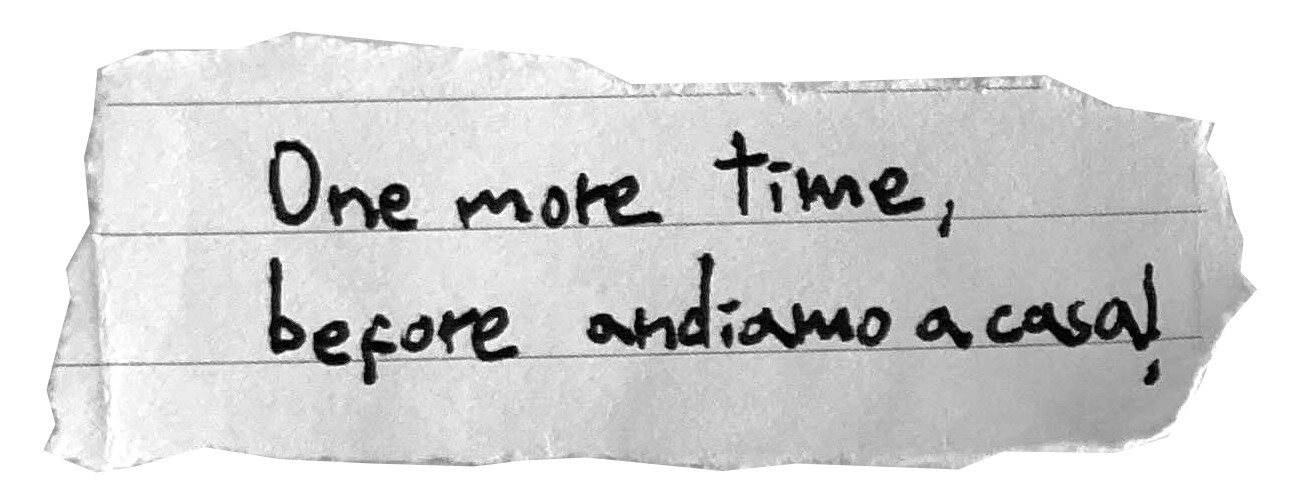 One more time,
before andiamo a casa!